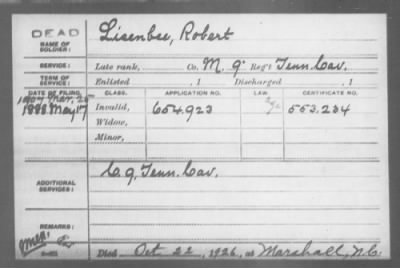 DEAD
NAME OF SOLDIER: Lisenbee, Robert
SERVICE: Late rank, Co. M, 9" Reg't Tenn. Cav.
TERM OF SERVICE: Enlisted , 1 Discharged , 1
DATE OF FILING. CLASS. APPLICATION NO. LAW. CERTIFICATE NO.
1907 Mar. 25
1888 May 17 Invalid, 654.923 553.234
Widow,
Minor,
ADDITIONAL SERVICES: C. 9, Tenn. Cav.
REMARKS:
Died Oct 22, 1926, at Marshall, N.C.